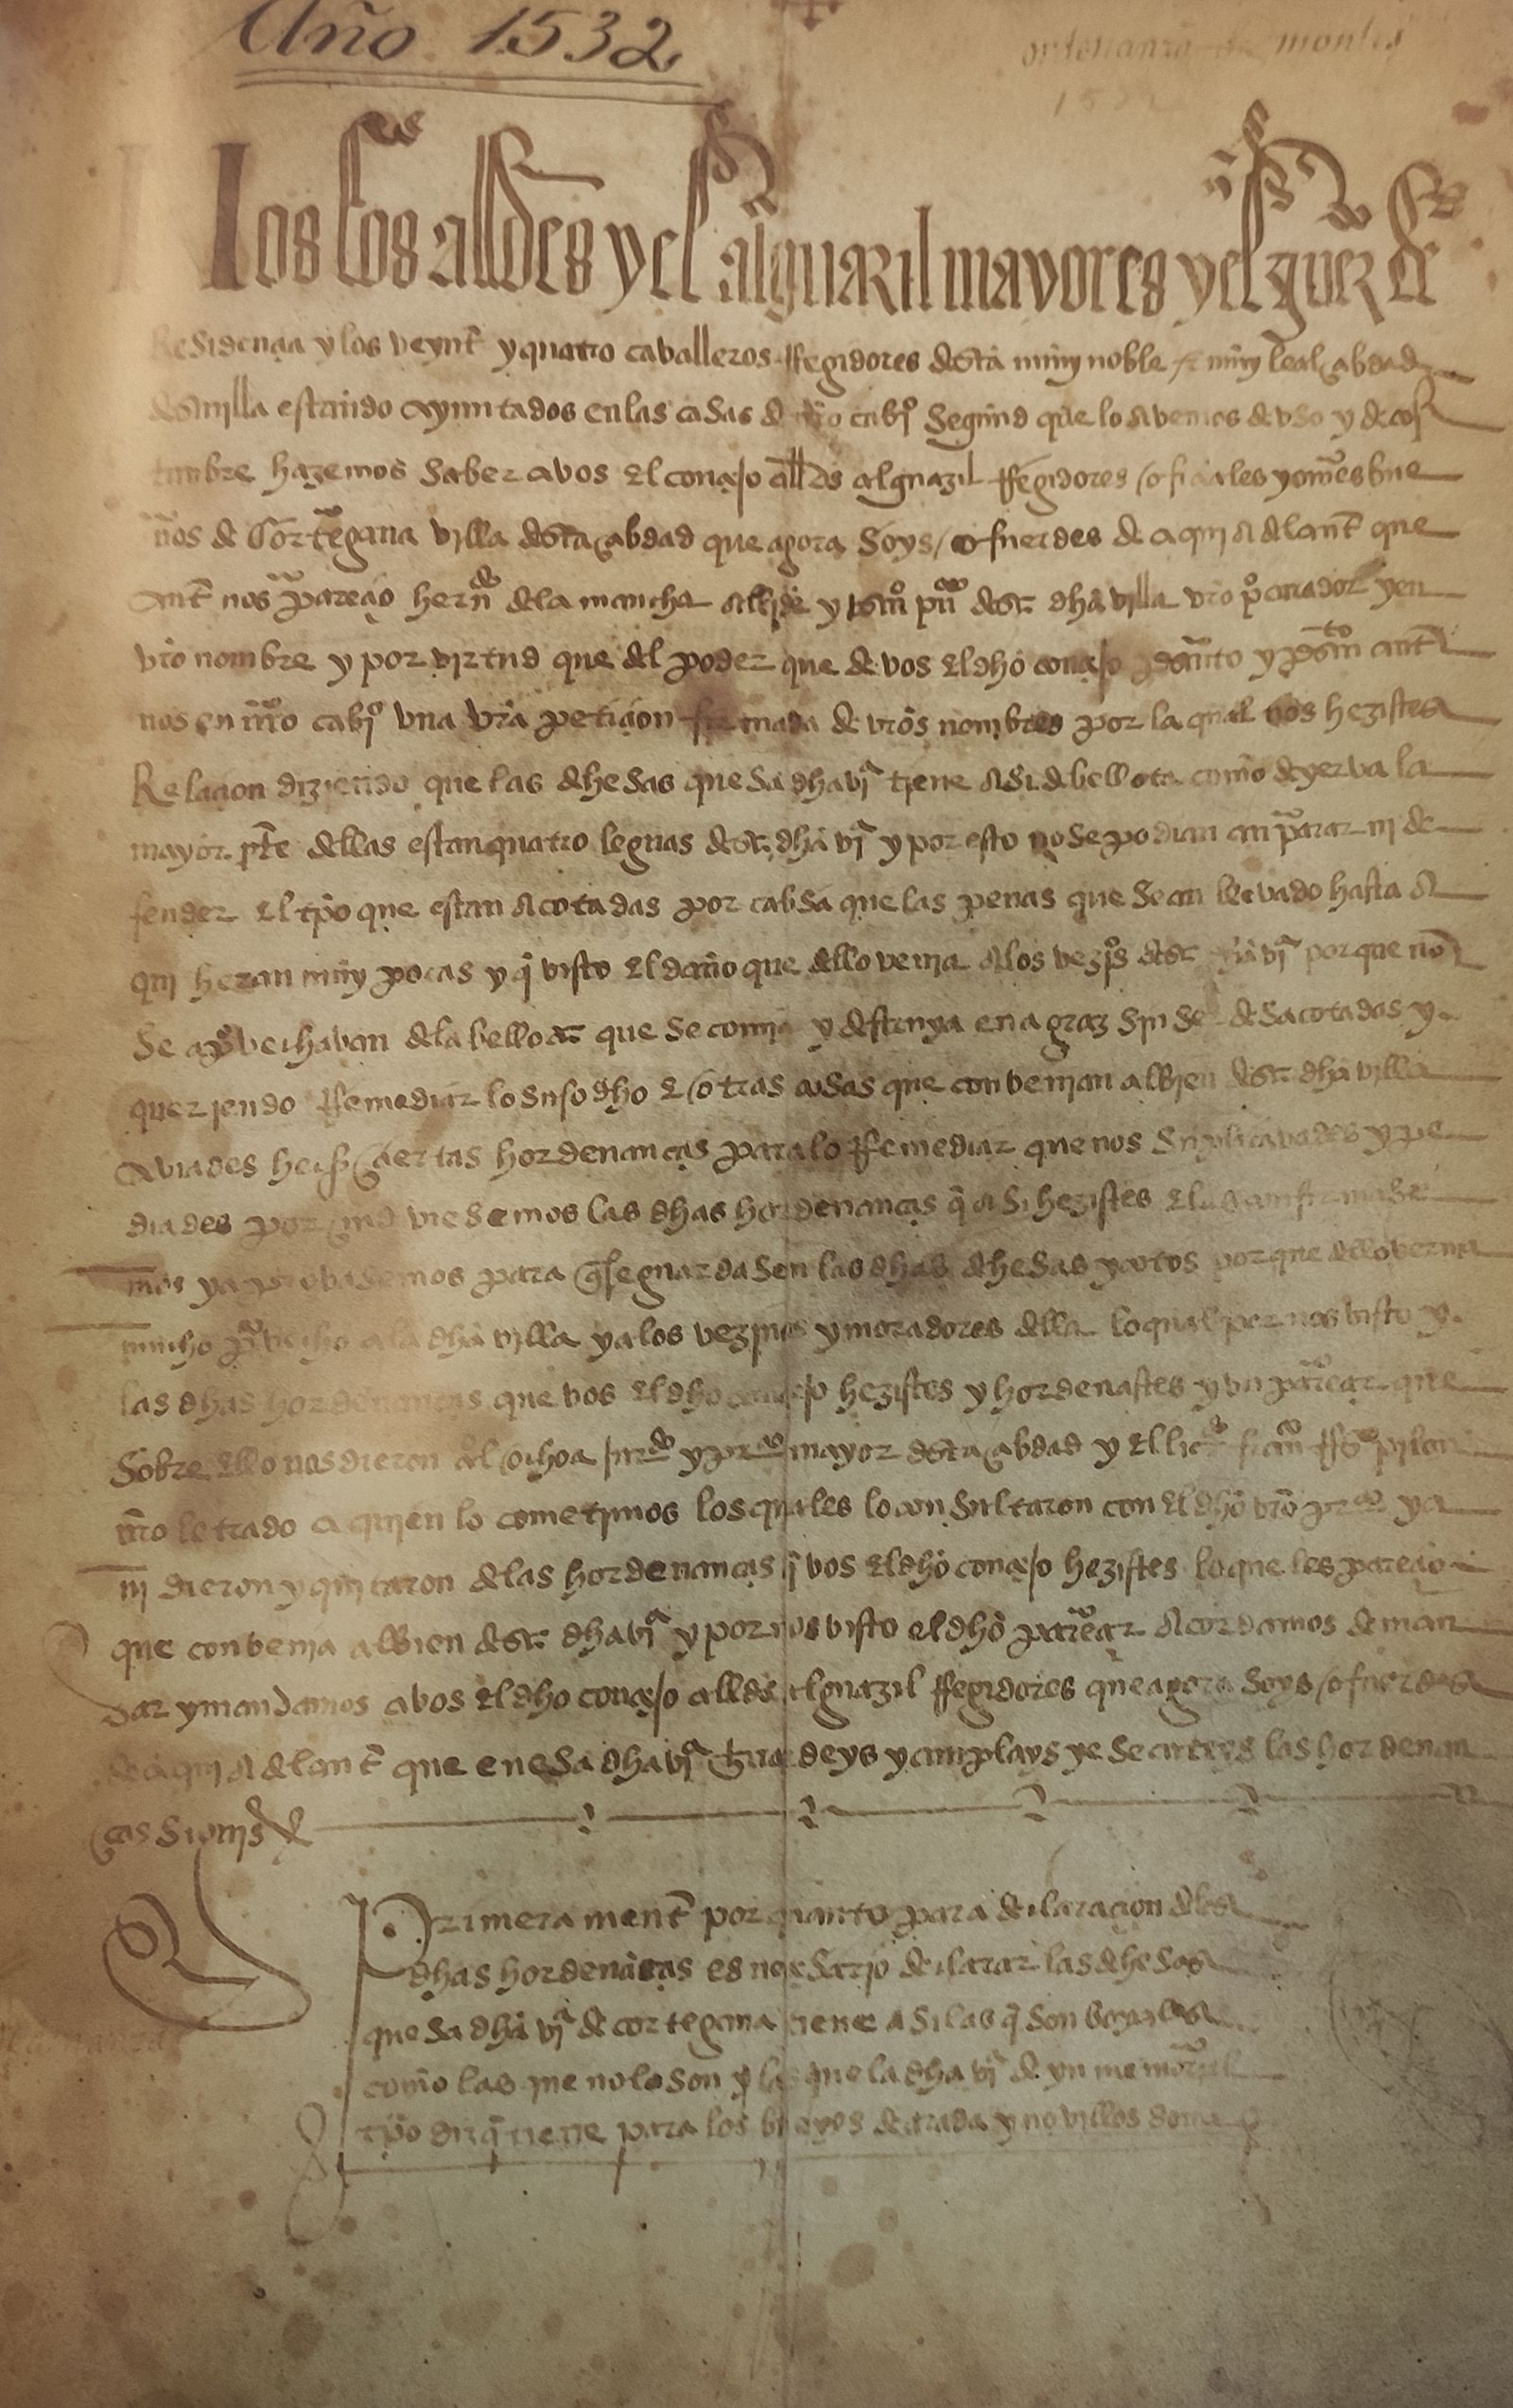 Año 1532
ordenanza de montes
1532
los allds y el alguazil mayores y el juez de
Residençia y los veynte y quatro cavalleros rregidores desta muy noble e muy leal çibdad
de sevilla estando ayuntados en las casas de nro cabio segund que lo avemos de vso y de cos
tumbre hazemos saber a vos el conçejo allds alguazil rregidores ofiçiales y omes bue
nos de Cortegana villa desta çibdad que agora soys o fuerdes de aqui adelante que
ante nos pareçio herndo de la mancha allde y dsta dha villa vro procurador y en
vro nombre y por virtud que del poder que de vos el dho conçejo ante
nos en nro cabio vna vra petiçion firmada de vros nombres por la qual nos hezistes
Relaçion diziendo que las dehesas que sa dha va tiene asi de bellota como de yerva la
mayor pte dellas estan quatro leguas desa dha va y por esto no se podian anparar ni de
fender el tpo que estan acotadas por cabsa que las penas que se an llevado hasta a
qui heran muy pocas y q visto el daño que dello venia a los vezos desa dha va porque no
se aprovechavan de la bellota que se comia y destruya en agraz sin ser desacotadas y
queriendo rremediar lo suso dho e otras cosas que convenian al bien desa dha villa
aviades hecho çiertas hordenanças para lo rremediar que nos suplicavades y pe
diades por md viesemos las dhas hordenanças q asi hezistes e las confirmase
mos y aprobasemos para q se guardasen las dhas dehesas y cotos porque dello vernia
mucho provecho a la dha villa y a los vezinos y moradores della lo qual por nos visto y
las dhas hordenanças que vos el dho conçejo hezistes y hordenastes y vn pareçer que
sobre ello nos dieron ochoa jurdo y mayor desta çibdad y el licdo
nro letrado a quien lo cometimos los quales lo consultaron con el dho vro y a
ñi dieron y quitaron de las hordenanças q vos el dho conçejo hezistes lo que les pareçio
que convenia al bien desa dha va y por nos visto el dho pareçer acordamos de man
dar y mandamos a vos el dho conçejo allds alguazil rregidores que agora soys o fuerdes
de aqui adelante que en esa dha va guardeys y cunplays y esecuteys las hordenan
ças siguis
Primeramente por quanto para declaraçion de las
dhas hordenanças es neçesario declarar las dehesas
que sa dha va de cortegana tiene asi las q son boyales
como las que no lo son y las que la dha va de ynmemorial
tpo diz q tiene para los bueyes de arada y novillos